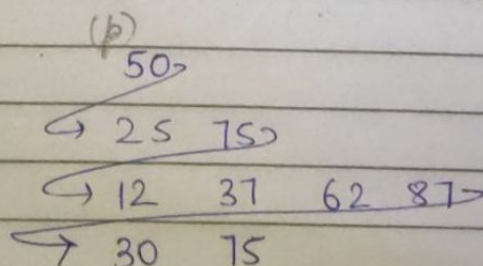 (p)
50
25 75
12 37 62 87
30 75